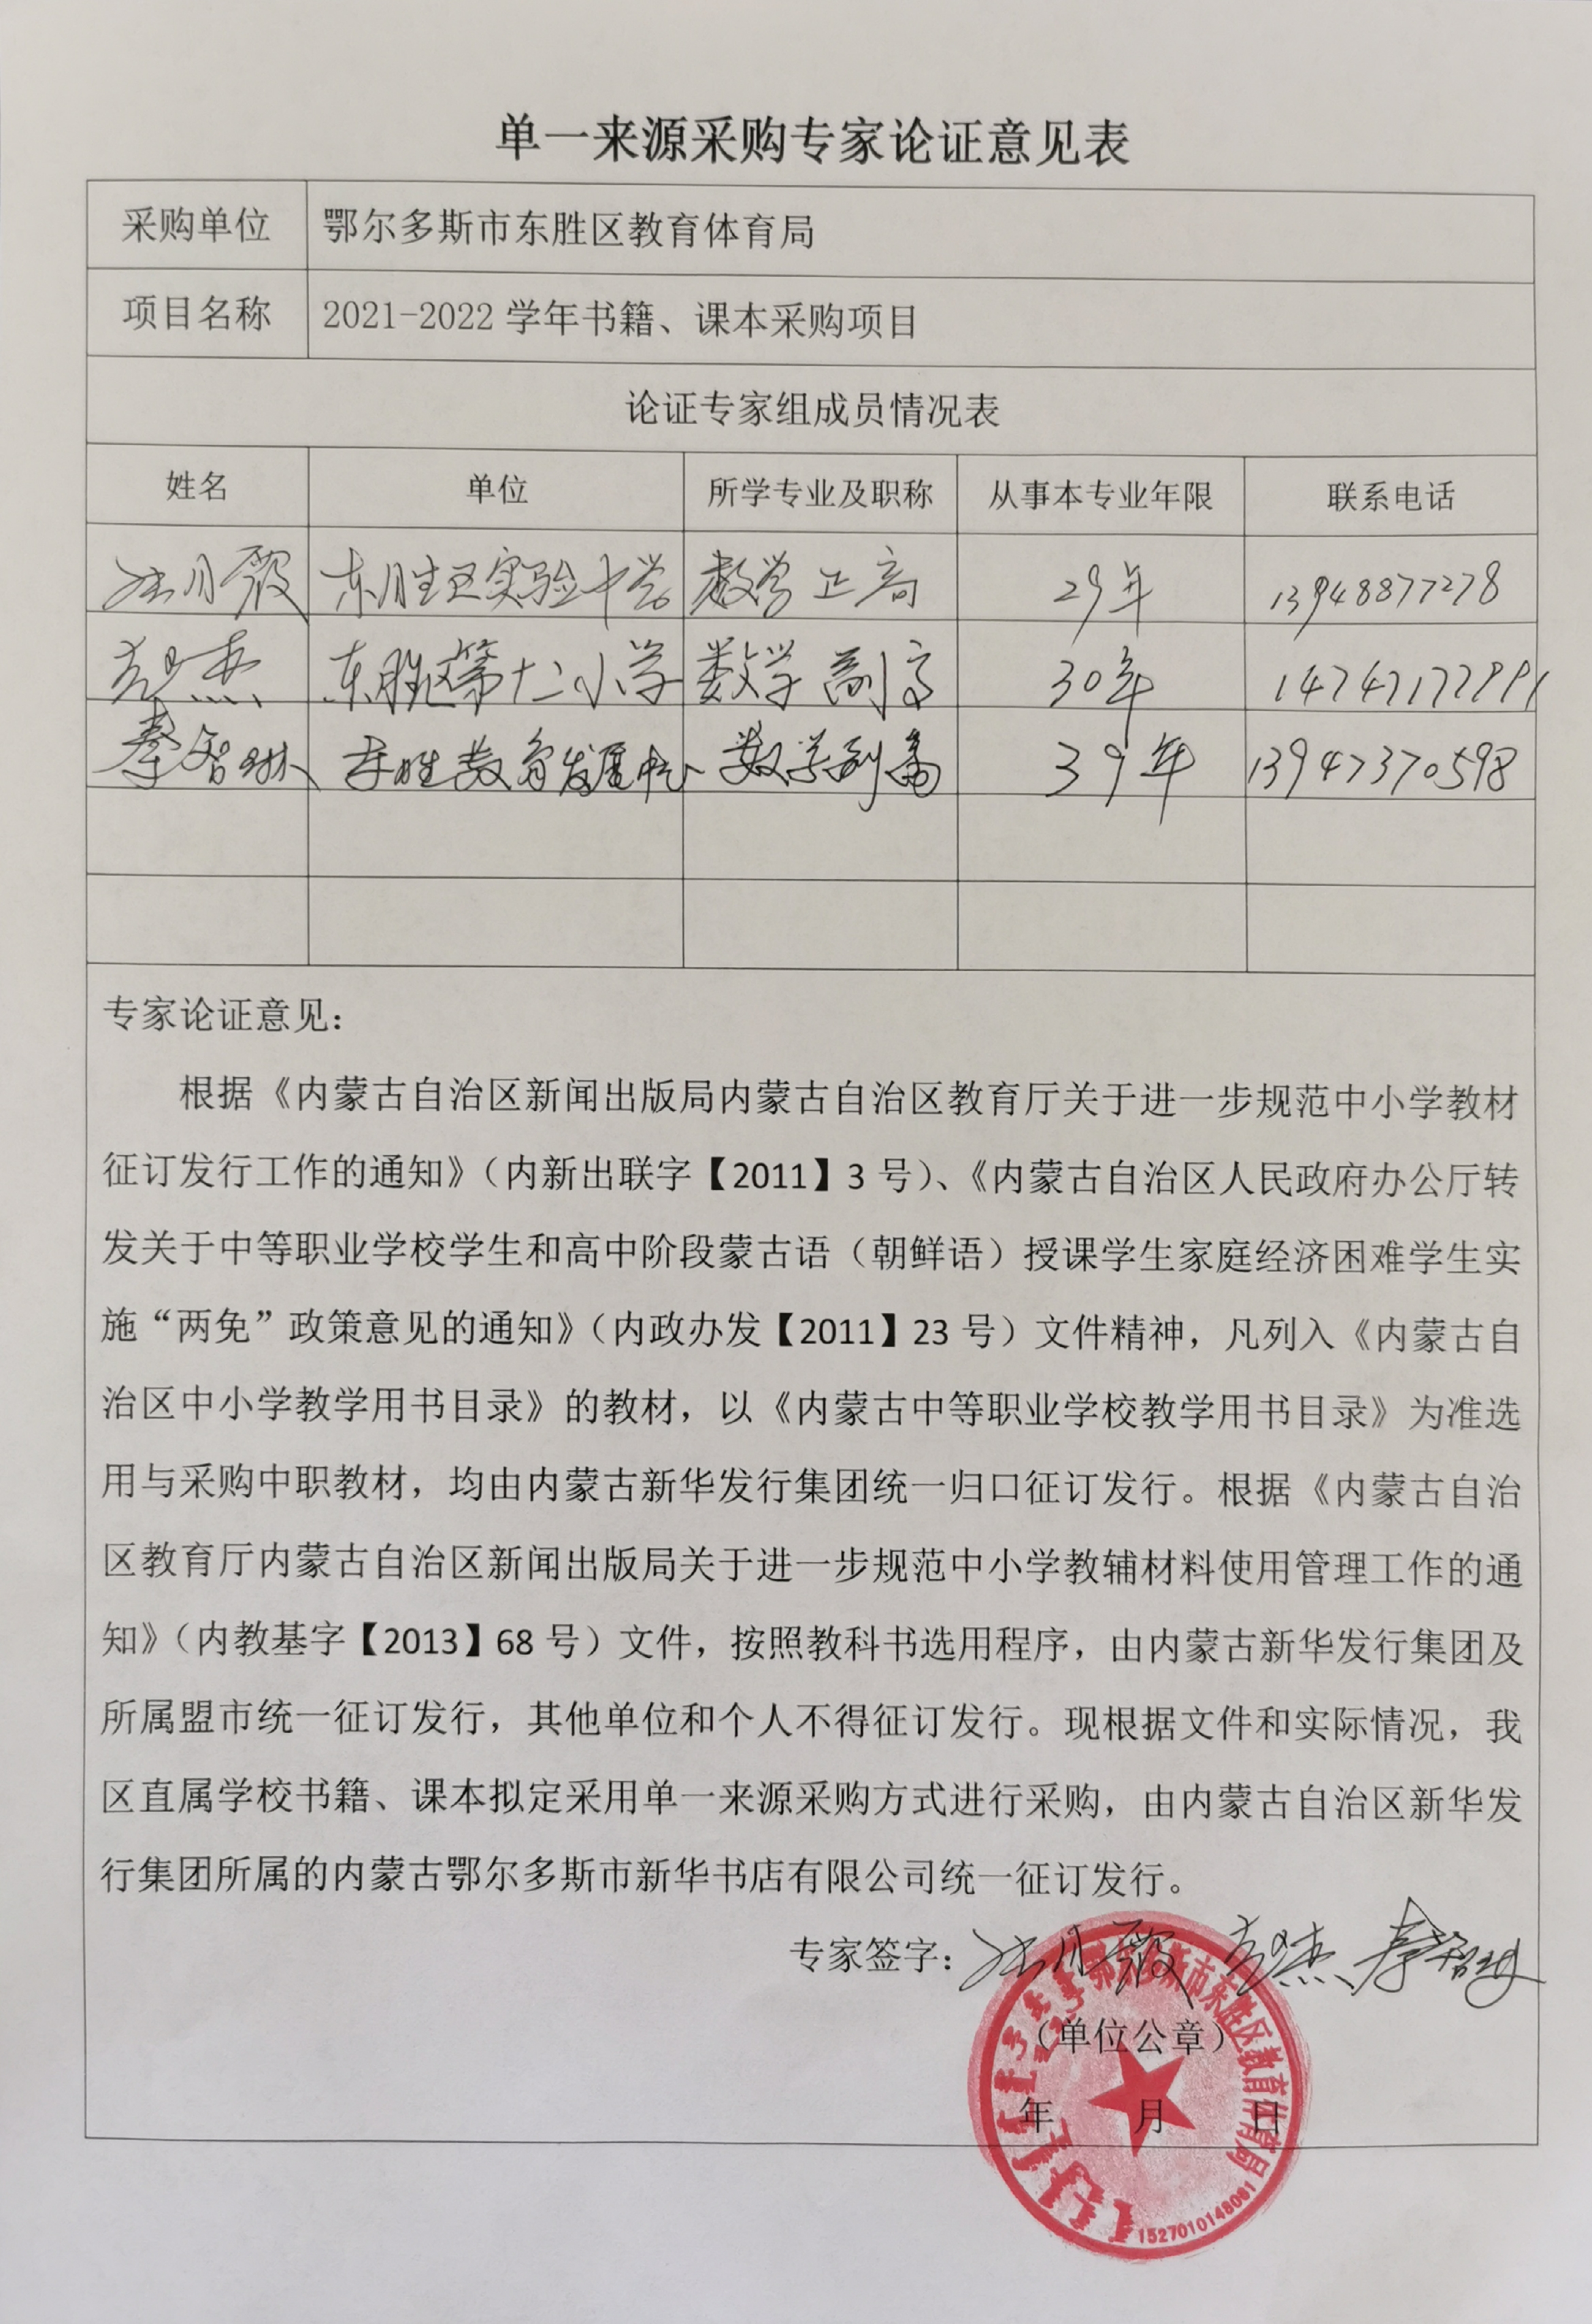 单一来源采购专家论证意见表
采购单位 鄂尔多斯市东胜区教育体育局
项目名称 2021-2022 学年书籍、课本采购项目
论证专家组成员情况表
姓名 单位 所学专业及职称 从事本专业年限 联系电话
东胜区实验中学 数学 正高 29年 13948877278
东胜区第十二小学 数学 副高 30年
秦智琳 东胜教育发展中心 数学副高 39年 13947370598
专家论证意见：
根据《内蒙古自治区新闻出版局内蒙古自治区教育厅关于进一步规范中小学教材
征订发行工作的通知》（内新出联字【2011】3 号）、《内蒙古自治区人民政府办公厅转
发关于中等职业学校学生和高中阶段蒙古语（朝鲜语）授课学生家庭经济困难学生实
施“两免”政策意见的通知》（内政办发【2011】23 号）文件精神，凡列入《内蒙古自
治区中小学教学用书目录》的教材，以《内蒙古中等职业学校教学用书目录》为准选
用与采购中职教材，均由内蒙古新华发行集团统一归口征订发行。根据《内蒙古自治
区教育厅内蒙古自治区新闻出版局关于进一步规范中小学教辅材料使用管理工作的通
知》（内教基字【2013】68 号）文件，按照教科书选用程序，由内蒙古新华发行集团及
所属盟市统一征订发行，其他单位和个人不得征订发行。现根据文件和实际情况，我
区直属学校书籍、课本拟定采用单一来源采购方式进行采购，由内蒙古自治区新华发
行集团所属的内蒙古鄂尔多斯市新华书店有限公司统一征订发行。
专家签字： 秦智琳
（单位公章）
年 月 日
斯市东胜区教育体育局
1527010148081